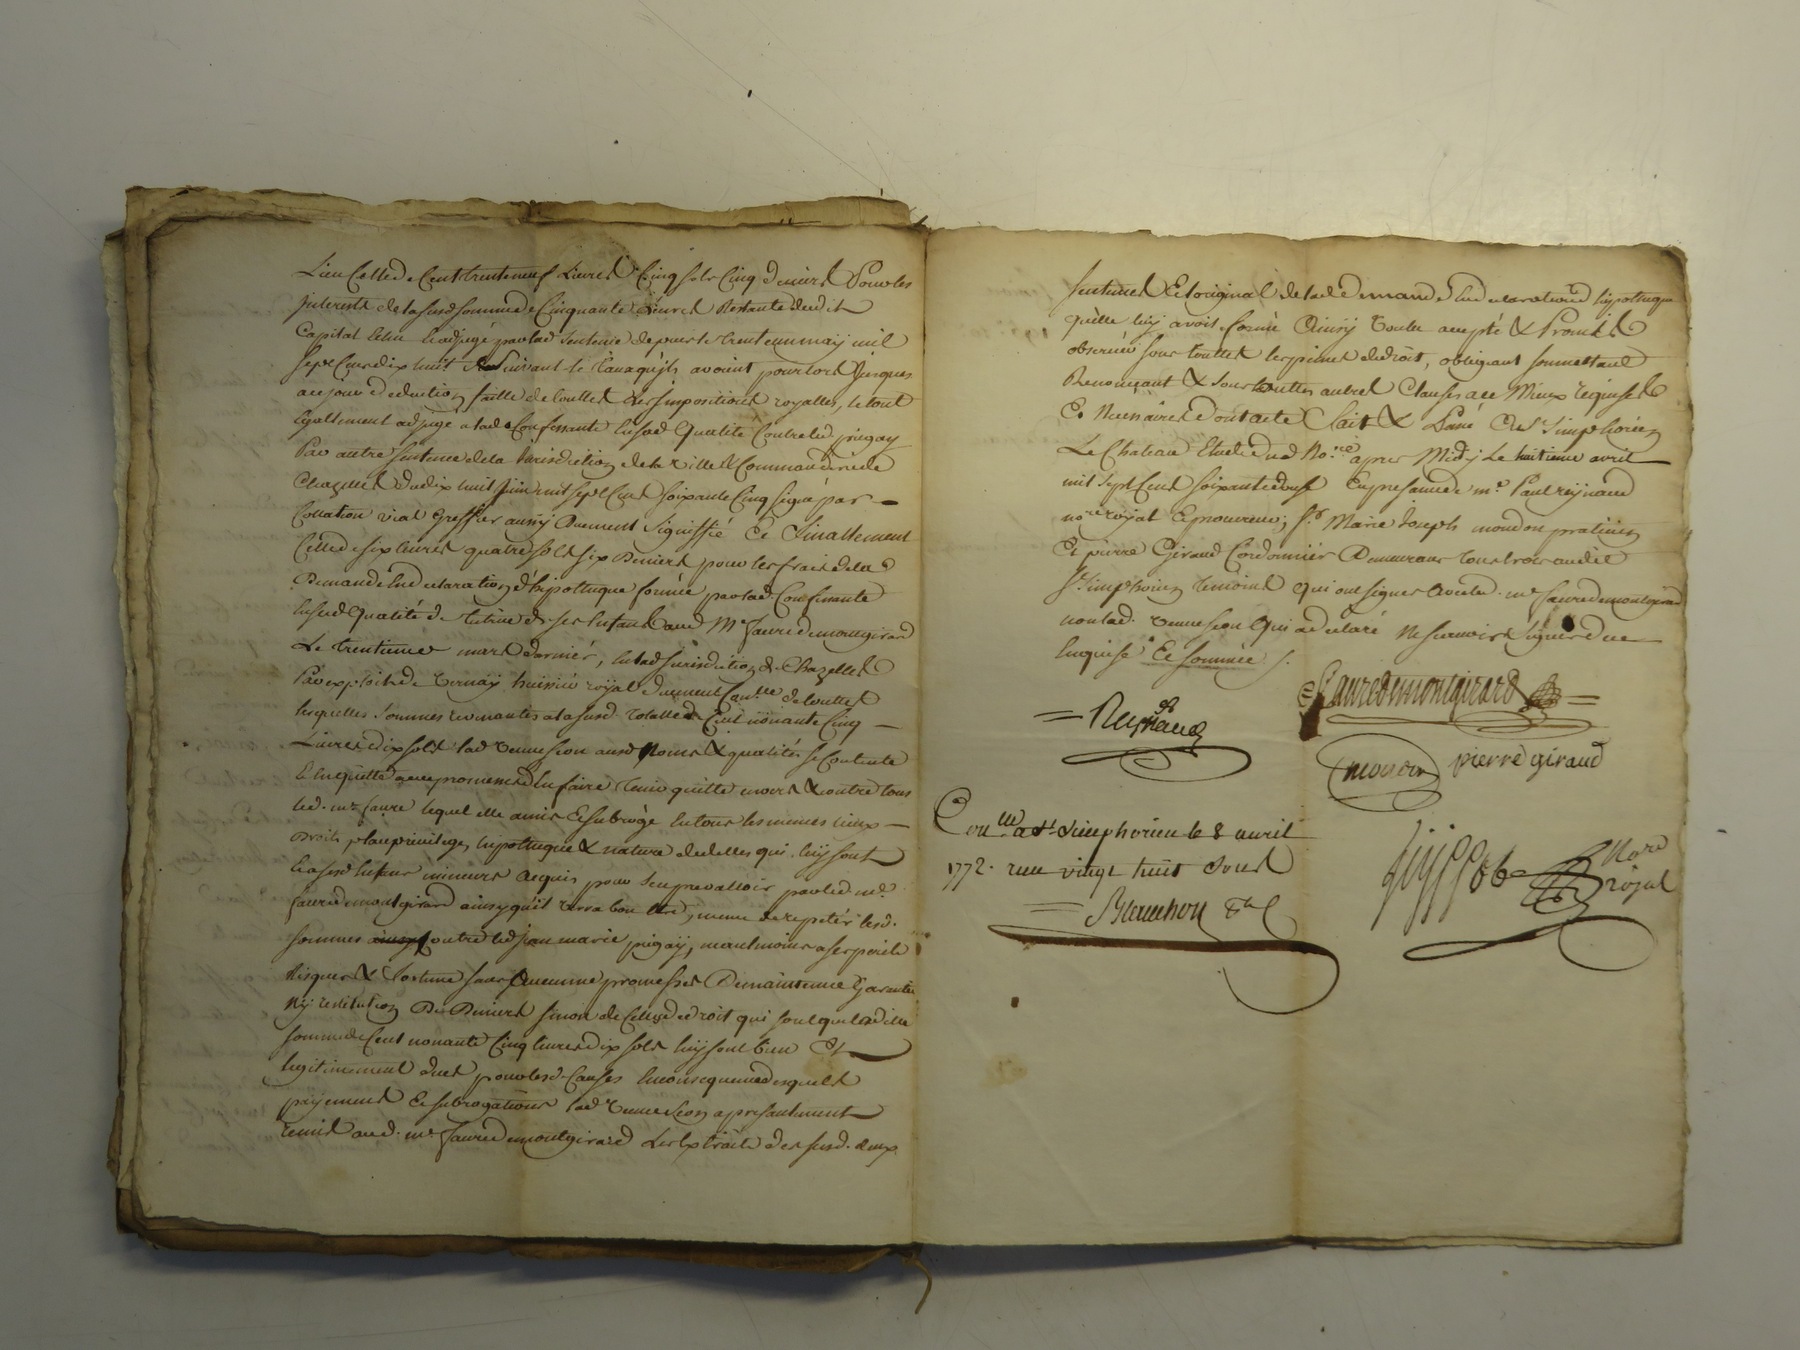 Lieu Celle de Cent trente neuf Livres Cinq sols Cinq deniers Pour les
interests de la susd. somme de Cinquante Livres Restante dudit
Capital a elle adjugé par lad. sentence depuis le trente un may mil
sept Cens dix huit suivant le taux qu'ils avoient pour lors jusques
a ce jour deduction faitte de touttes les impositions royalles, le tout
Egallement adjugé a lad. Confessante en sad. Qualité Contre led. pugay
Par autre sentence de la Jurisdiction de la Ville & Commanderie de
Chazelles du dix huit Juin mil sept Cent soixante Cinq signé par
Collation vial Greffier aussy Duement Signiffié Et finallement
Celle de six livres quatre sols six Deniers pour les frais de la
Demande En declaration d'hipotheque formée par lad. Confessante
en sad. Qualité de tutrice de ses Enfants aud. Me faure de montgirard
Le trentieme mars dernier, en lad. Jurisdiction de Chazelles
Par exploit de Vernay huissier royal duement Conllé de touttes
lesquelles sommes revenantes a la susd. Totalle de Cent nonante Cinq
Livres dix sols lad. Veuve sion aud. Noms & qualités se Contente
& En quitte avec promesse d'En faire tenir quitte envers & contre tous
led. me faure lequel elle a mis & subrogé En tous les memes lieux
Droits, place privileges, hipotheque & nature d'icelles qui luy sont
& a sesd. Enfans mineurs Acquis pour s'en prevalloir par led. me
faure de montgirard ainsy qu'il verra bon Etre, meme de repeter lesd.
sommes Contre led. jean marie pugay, neantmoins a ses perils
Risques & fortune sans Aucunne promesses De maintenue Garantie
Ny restitution De Deniers sinon de Celle de droit qui sont que lad.
somme de Cent nonante Cinq livres dix sols luy sont bien Et
legitimement dues pour lesd. Causes En consequence desquels
payement & subrogations lad. Veuve sion a presentement
remis aud. me faure de montgirard les Extraits des susd. deux
sentences Et original de lad. demande En declaration d'hypotheque
qu'elle luy avoit formé Ainsy Voulu accepté & Promis
observer sous touttes les peines de droit, obligeant soumettant
Renonçant & sous touttes autres Clauses a ce Mieux requises
Et Necessaires dont acte fait & Passé A St Simphorien
Le Chateau Etude dud. Nore apres Midy Le huitieme avril
mil sept Cent soixante douse En presence de me Paul reynaud
nore royal & procureur, sr Marie Joseph mondon praticien
Et pierre Giraud Cordonnier Demeurans tous trois audit
St Simphorien temoins qui ont signés avec led. me faure de montgirard
non lad. Veuve sion qui a declaré ne sçavoir signer de ce
Enquise & sommée ./.
Reynaud
faure de montgirard
mondon
pierre giraud
Conllé a St Simphorien le 8 avril
1772. reçu vingt huit sous
Blanchon
Nore
royal